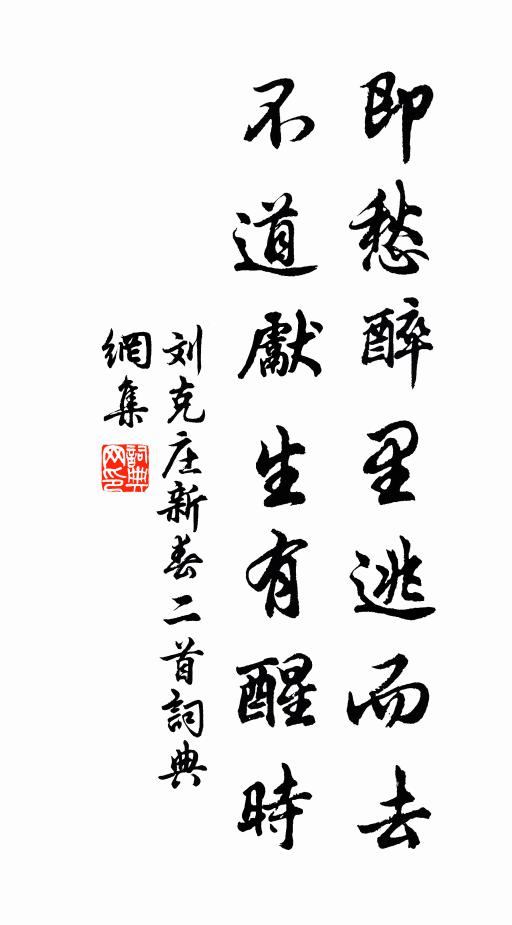 即愁醉里逃而去
不道獻生有醒時
刘克庄新春二首詞典
網集
詞典
网印